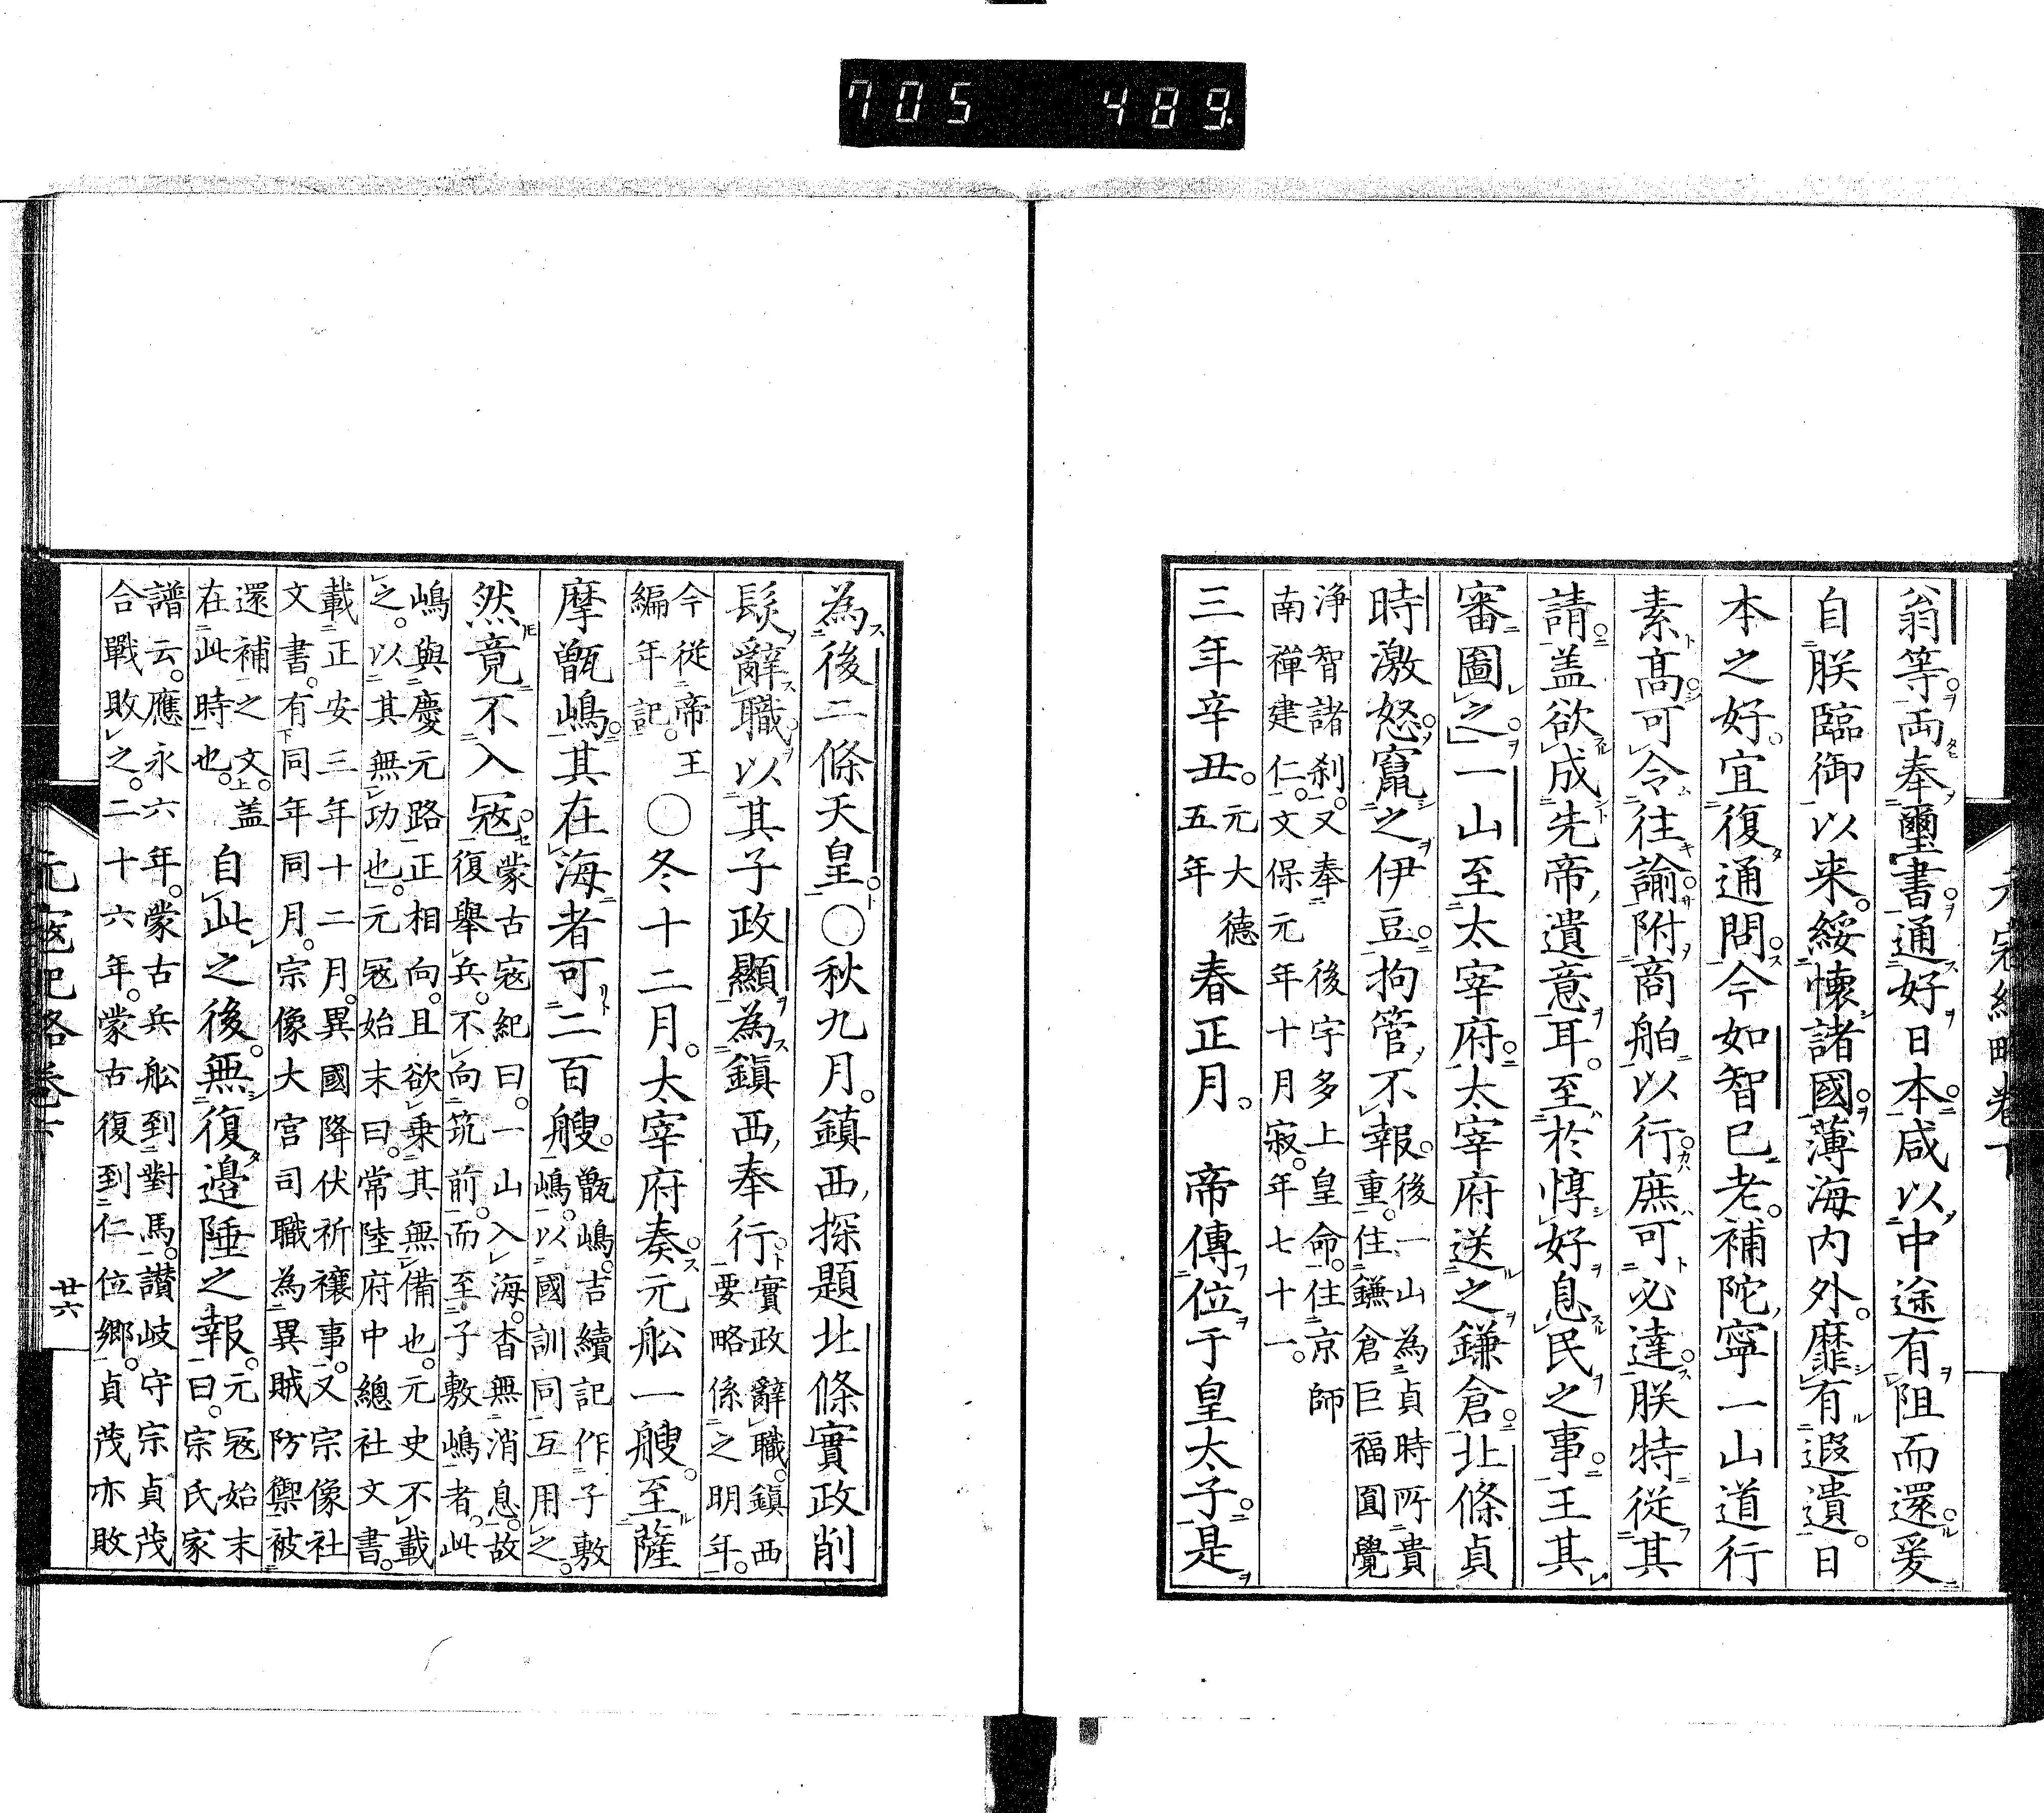 705 489
元寇紀略卷下
翁等両奉璽書通好日本咸以中途有阻而還爰
自朕臨御以来綏懷諸國薄海内外靡有遐遺日
本之好宜復通問今如智已老補陀寧一山道行
素高可令往諭附商舶以行庶可必達朕特從其
請盖欲成先帝遺意耳至於惇好息民之事王其
審圖之一山至太宰府太宰府送之鎌倉北條貞
時激怒竄之伊豆拘管不報後一山為貞時所貴
重住鎌倉巨福圓覺
浄智諸刹又奉後宇多上皇命住京師
南禪建仁文保元年十月寂年七十一
三年辛丑元大德
五年春正月帝傳位于皇太子是
為後二條天皇〇秋九月鎮西探題北條實政削
髮辭職以其子政顯為鎮西奉行實政辭職鎮西
要略係之明年
今從帝王
編年記〇冬十二月太宰府奏元舩一艘至薩
摩甑嶋其在海者可二百艘甑嶋吉續記作子敷
嶋以國訓同互用之
然竟不入寇蒙古寇紀曰一山入海杳無消息故
復舉兵不向筑前而至子敷嶋者此
嶋與慶元路正相向且欲乗其無備也元史不載
之以其無功也元寇始末曰常陸府中總社文書
載正安三年十二月異國降伏祈禳事又宗像社
文書有同年同月宗像大宮司職為異賊防禦被
還補之文盖
在此時也自此之後無復邉陲之報元寇始末
曰宗氏家
譜云應永六年蒙古兵舩到對馬讃岐守宗貞茂
合戰敗之二十六年蒙古復到仁位郷貞茂亦敗
元寇紀略卷下
廿六